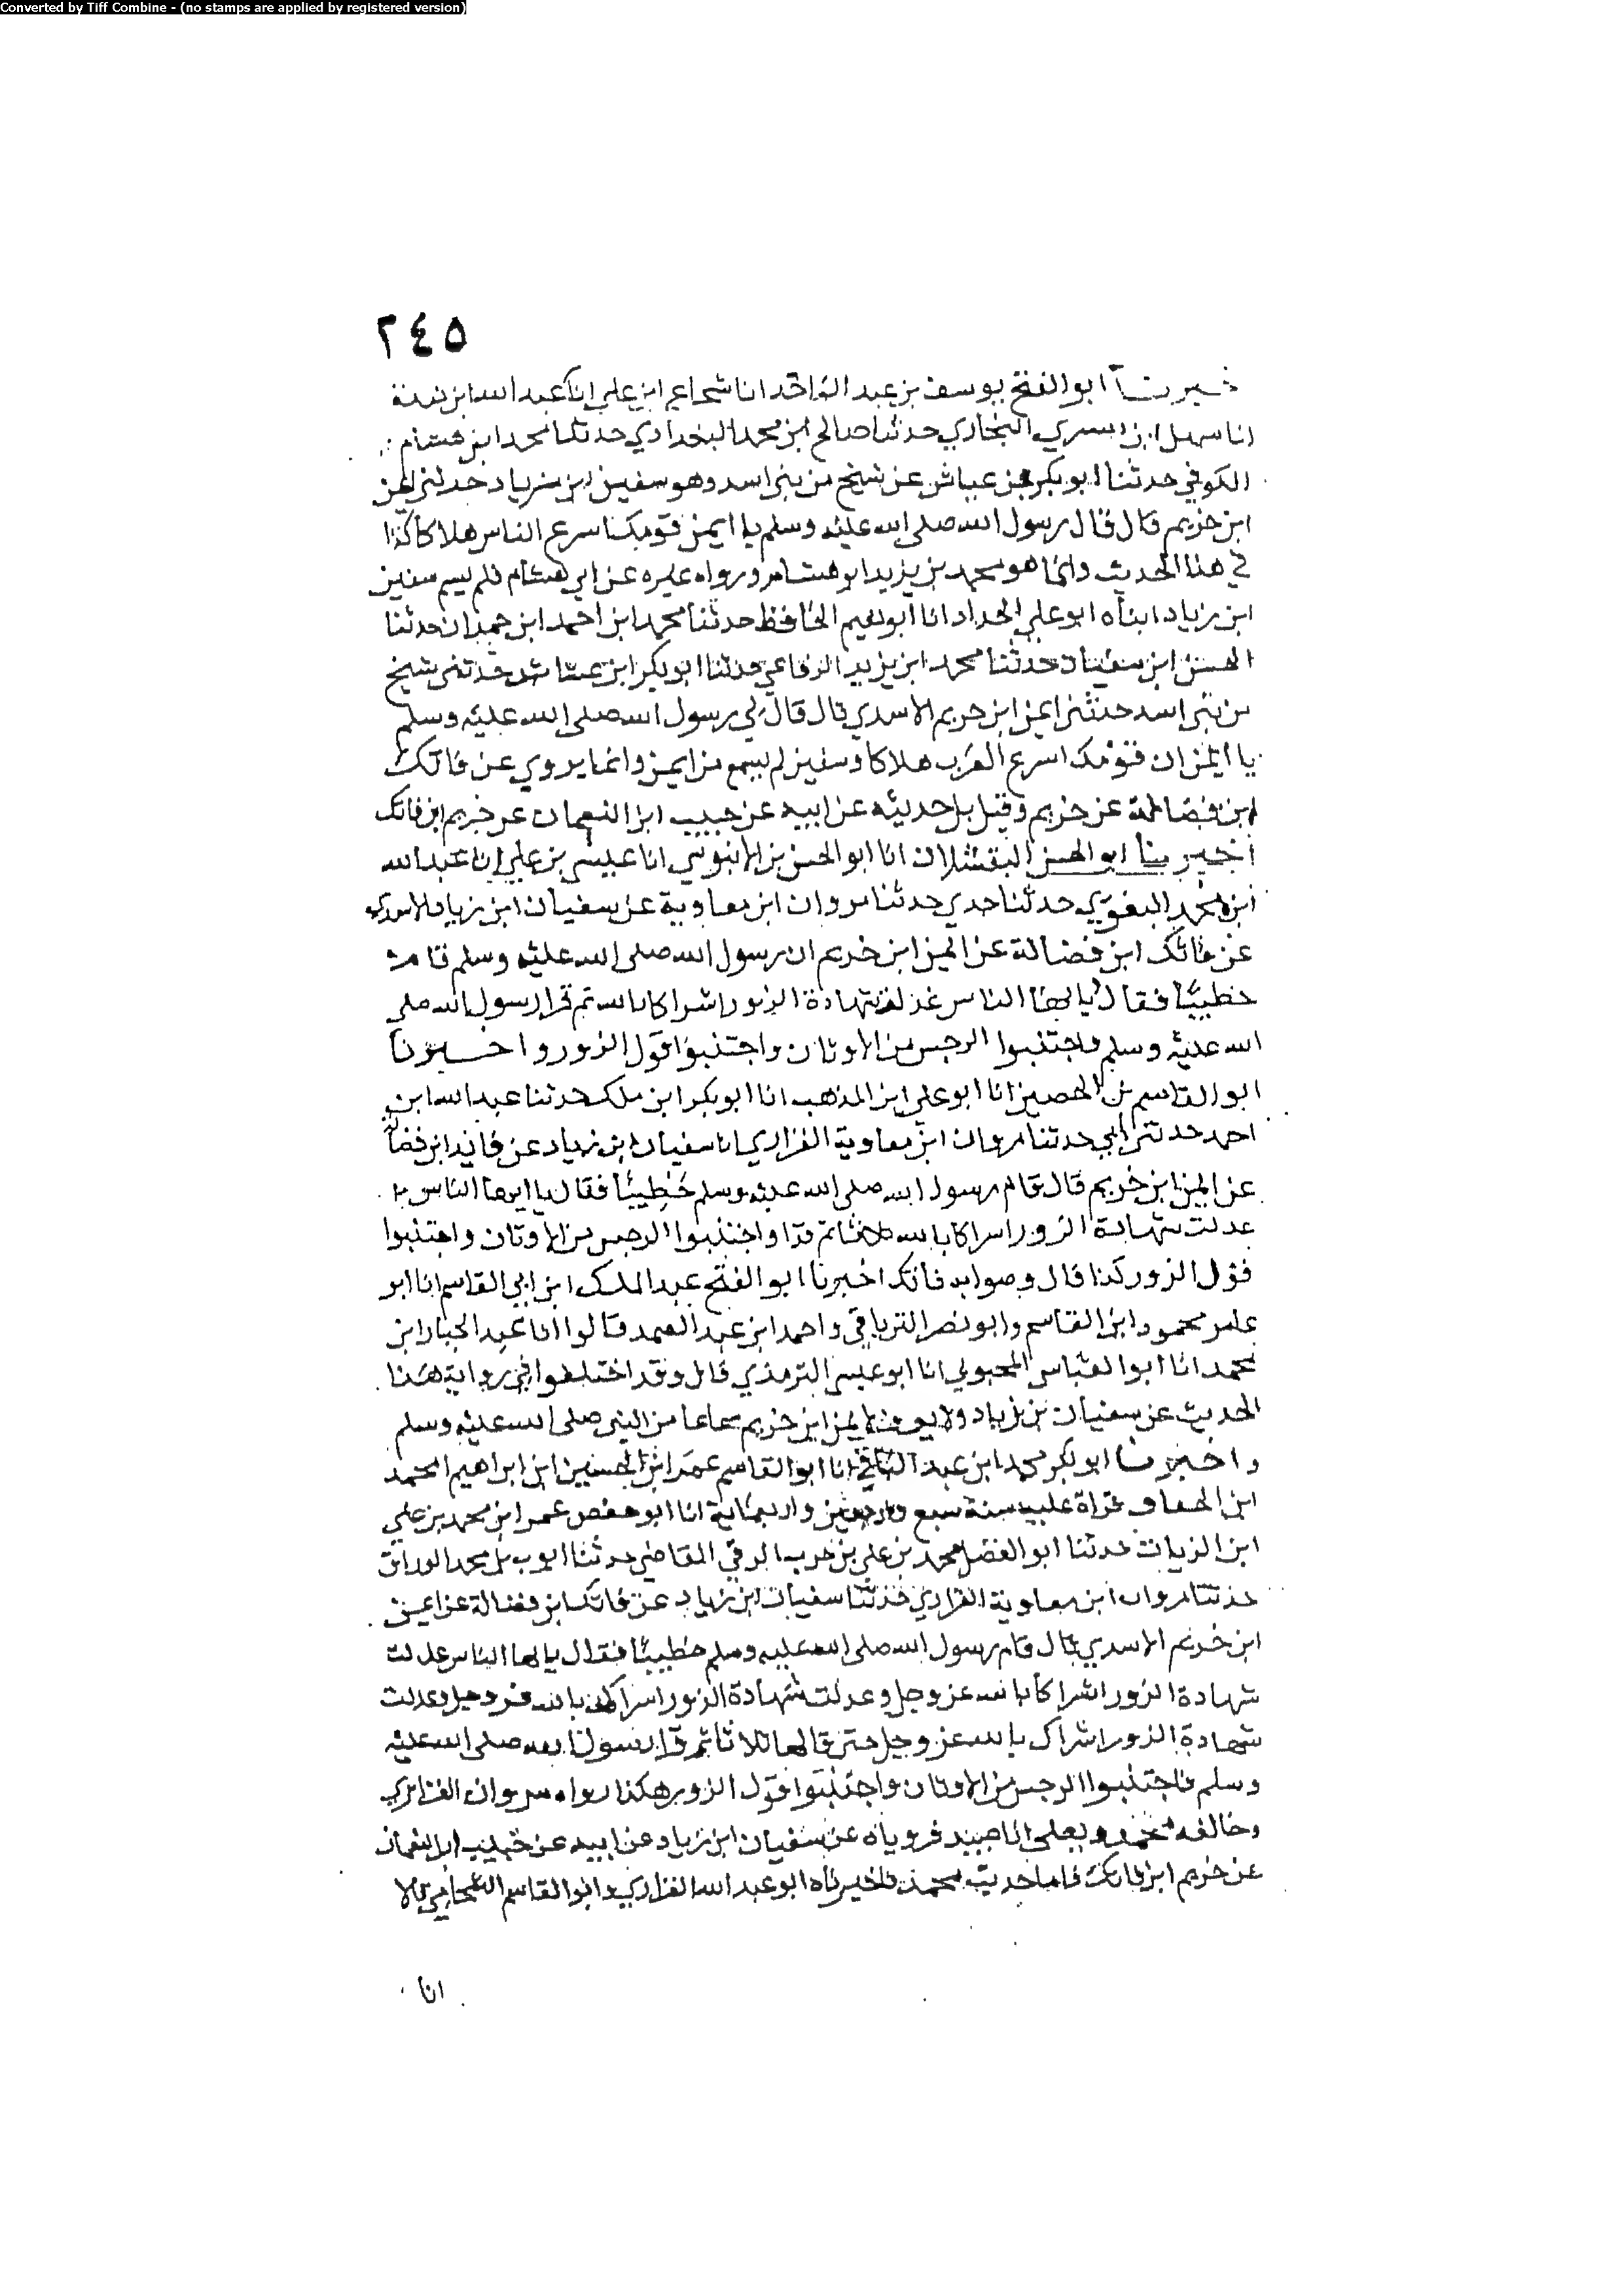 Converted by Tiff Combine - (no stamps are applied by registered version)
٢٤٥
خبرنا ابو الفتح يوسف بن عبد الواحد انا شجاع ابن علي انا عبد الله ابن
انا سهل ابن السري البخاري حدثنا صالح ابن محمد البغدادي حدثنا محمد ابن هشام
الكوفي حدثنا ابو بكر بن عياش عن شيخ من بني اسد وهو سفين ابن زياد حدثني ايمن
ابن خريم قال قال رسول الله صلى الله عليه وسلم يا ايمن قومك اسرع الناس هلاكا كذا
في هذا الحديث وانما هو محمد بن يزيد ابو هشام ورواه غيره عن ابي هشام فلم يسم سفين
ابن زياد ابناه ابو علي الحداد انا ابو نعيم الحافظ حدثنا محمد ابن احمد ابن حمدان حدثنا
الحسن ابن سفيان حدثنا محمد ابن يزيد الرفاعي حدثنا ابو بكر ابن عياش حدثني شيخ
من بني اسد حدثني ايمن ابن خريم الاسدي قال قال لي رسول الله صلى الله عليه وسلم
يا ايمن ان قومك اسرع العرب هلاكا وسفين لم يسمع من ايمن وانما يروي عن فاتك
ابن فضالة عن خريم وقيل بل حديثه عن ابيه عن حبيب ابن النعمان عن خريم ابن فاتك
اخبرنا ابو الحسن البقشلان انا ابو الحسن بن الابنوسي انا عيسى بن علي انا عبد الله
ابن محمد البغوي حدثنا جدي حدثنا مروان ابن معاوية عن سفيان ابن زياد الاسدي
عن فاتك ابن فضالة عن ايمن ابن خريم ان رسول الله صلى الله عليه وسلم قام
خطيبا فقال يا ايها الناس عدلت شهادة الزور اشراكا بالله ثم قرا رسول الله صلى
الله عليه وسلم فاجتنبوا الرجس من الاوثان واجتنبوا قول الزور واخبرنا
ابو القاسم بن الحصين انا ابو علي ابن المذهب انا ابو بكر ابن ملك حدثنا عبد الله ابن
احمد حدثني ابي حدثنا مروان ابن معاوية الفزاري انا سفيان ابن زياد عن فايد ابن فضالة
عن ايمن ابن خريم قال قام رسول الله صلى الله عليه وسلم خطيبا فقال يا ايها الناس
عدلت شهادة الزور اسراكا بالله ثلاثا ثم قرا واجتنبوا الرجس من الاوثان واجتنبوا
قول الزور كذا قال وصوابه فاتك اخبرنا ابو الفتح عبد الملك ابن ابي القاسم انا ابو
عامر محمود ابن القاسم وابو نصر الترياقي واحمد ابن عبد الصمد قالوا انا عبد الجبار ابن
محمد انا ابو العباس المحبوبي انا ابو عيسى الترمذي قال وقد اختلفوا في رواية هذا
الحديث عن سفيان بن زياد ولا يعرف لايمن ابن خريم سماعا من النبي صلى الله عليه وسلم
واخبرنا ابو بكر محمد ابن عبد الباقي انا ابو القاسم عمر ابن الحسين ابن ابراهيم المحمد
ابن الخفاف قراة عليه سنة سبع واربعين واربعماية انا ابو حفص عمر ابن محمد بن علي
ابن الزيات حدثنا ابو الفضل محمد بن علي بن حرب الرقي القاضي حدثنا ايوب بن محمد الوراق
حدثنا مروان ابن معاوية الفزاري حدثنا سفيان ابن زياد عن فاتك ابن فضالة عن ايمن
ابن خريم الاسدي قال قام رسول الله صلى الله عليه وسلم خطيبا فقال يا ايها الناس عدلت
شهادة الزور اشراكا بالله عز وجل وعدلت شهادة الزور اشراكا بالله عز وجل وعدلت
شهادة الزور اشراك بالله عز وجل حتى قالها ثلاثا ثم قرا رسول الله صلى الله عليه
وسلم فاجتنبوا الرجس من الاوثان واجتنبوا قول الزور هكذا رواه مروان الفزاري
وخالفه محمد ويعلى انا عبيد فروياه عن سفيان ابن زياد عن ابيه عن حبيب ابن النعمان
عن خريم ابن فاتك فاما حديث محمد فاخبرناه ابو عبد الله الفراري وابو القاسم الشحامي قالا
انا